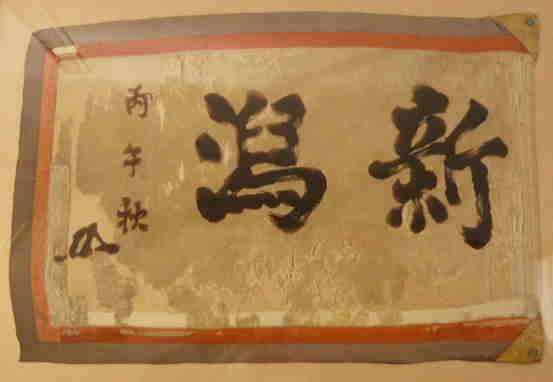 新潟
丙午秋